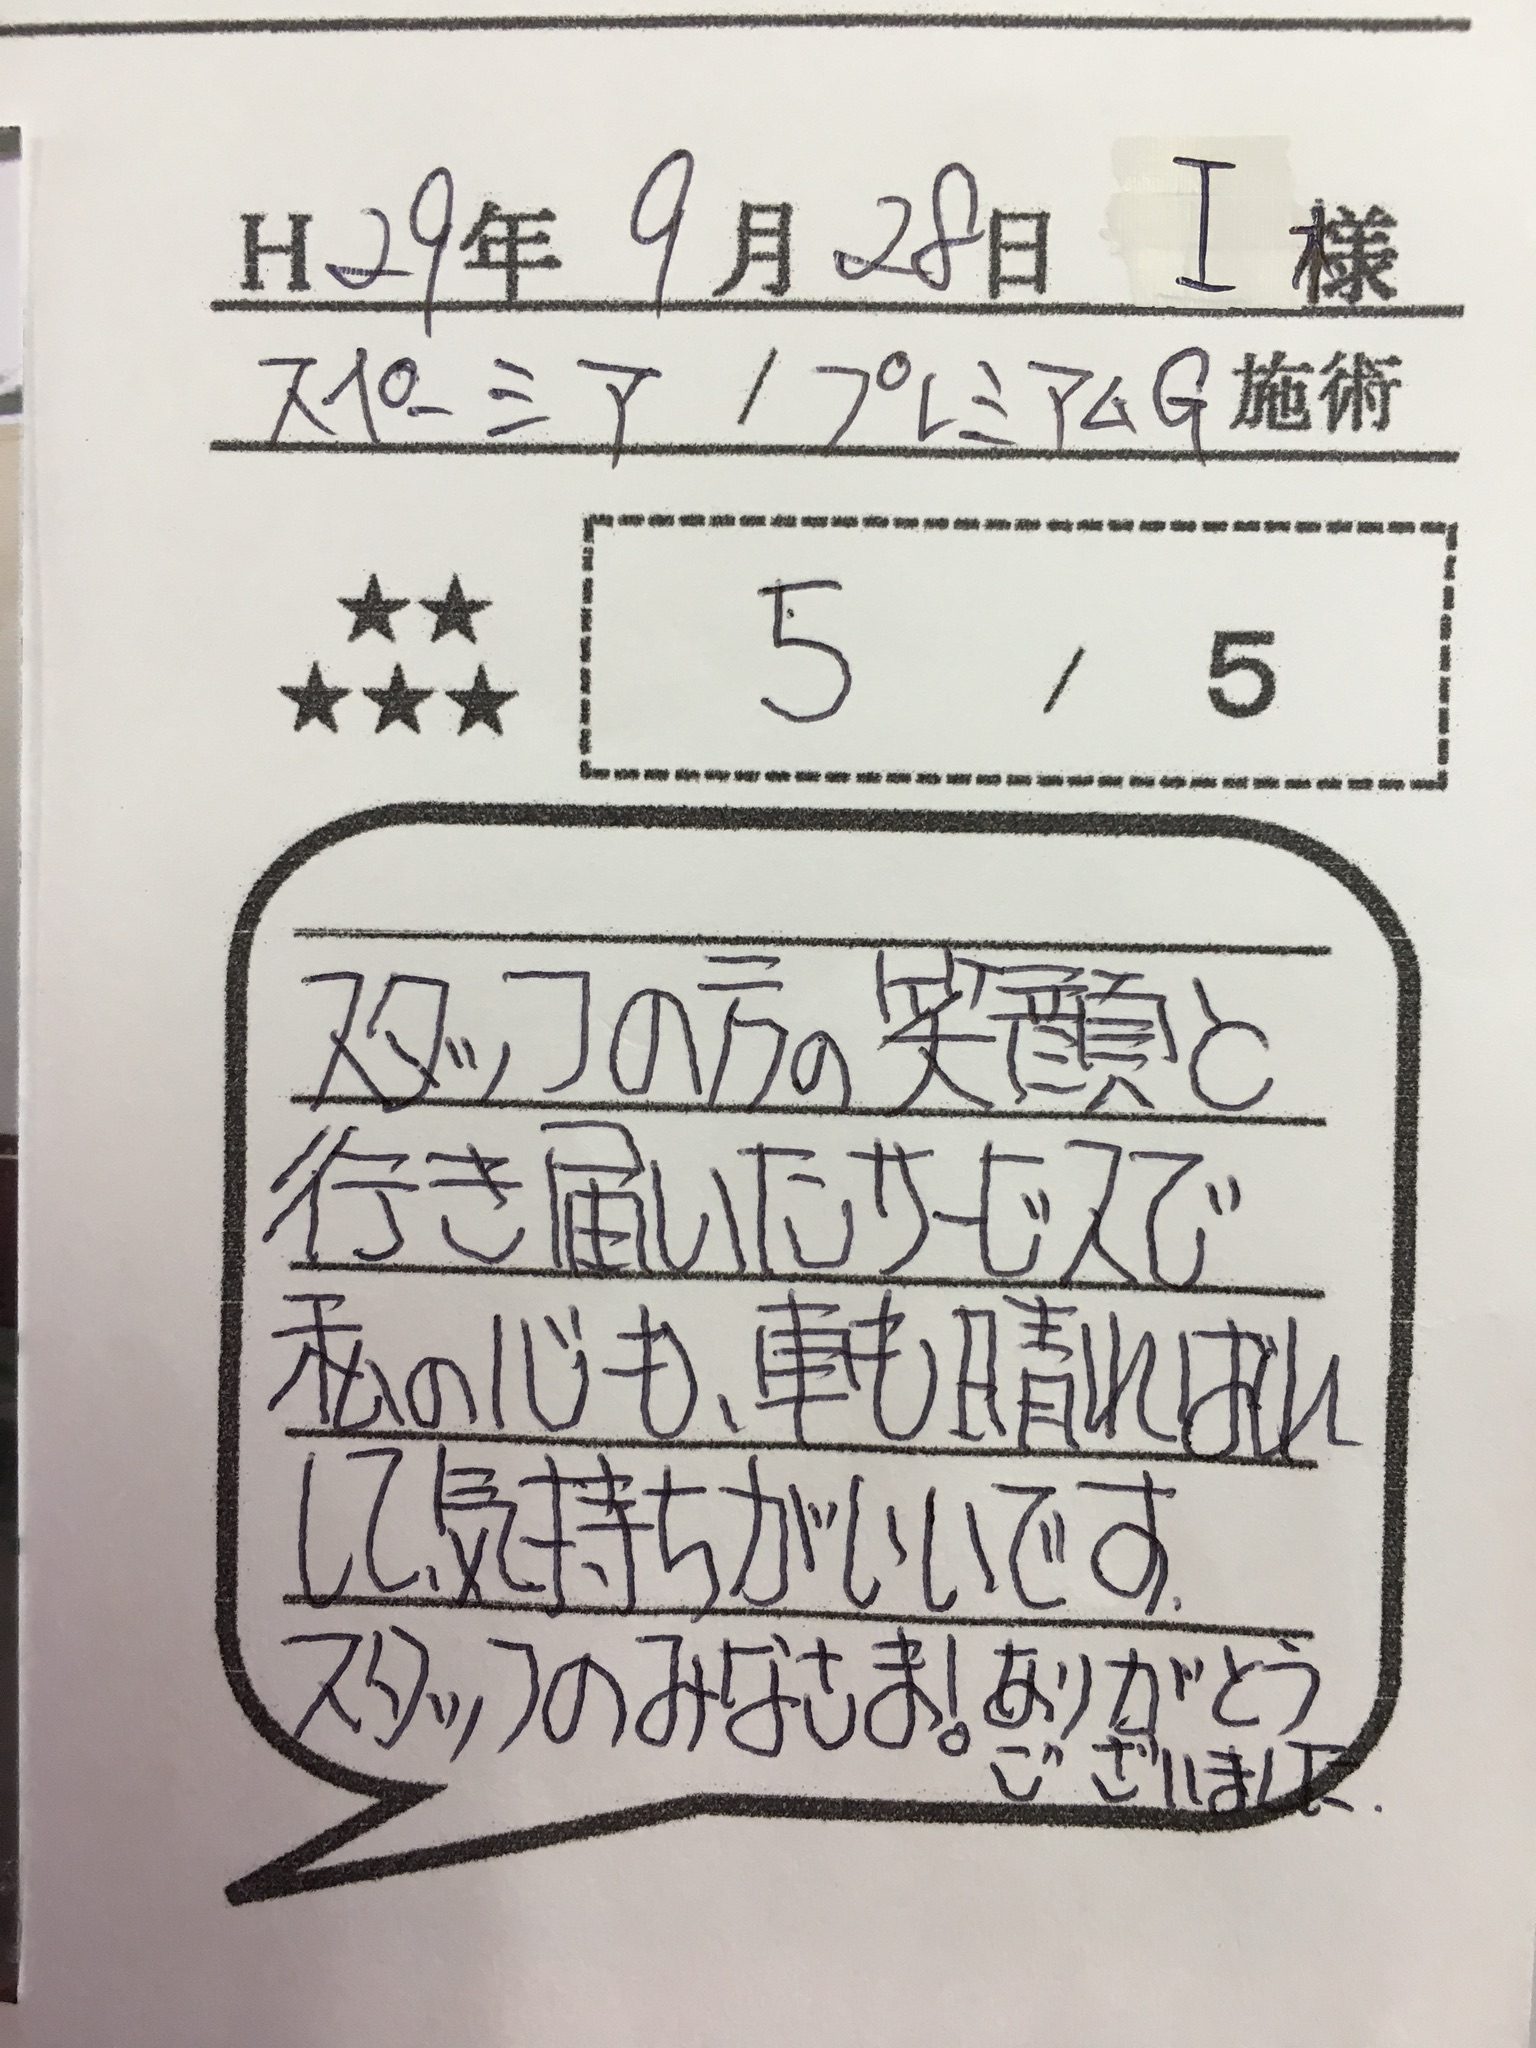 H29年 9月28日 I様
スペーシア / プレミアムG施術
★★
★★★
5 / 5
スタッフの方の笑顔と
行き届いたサービスで
私の心も、車も晴ればれ
して、気持ちがいいです。
スタッフのみなさま!。ありがとう
ございました.